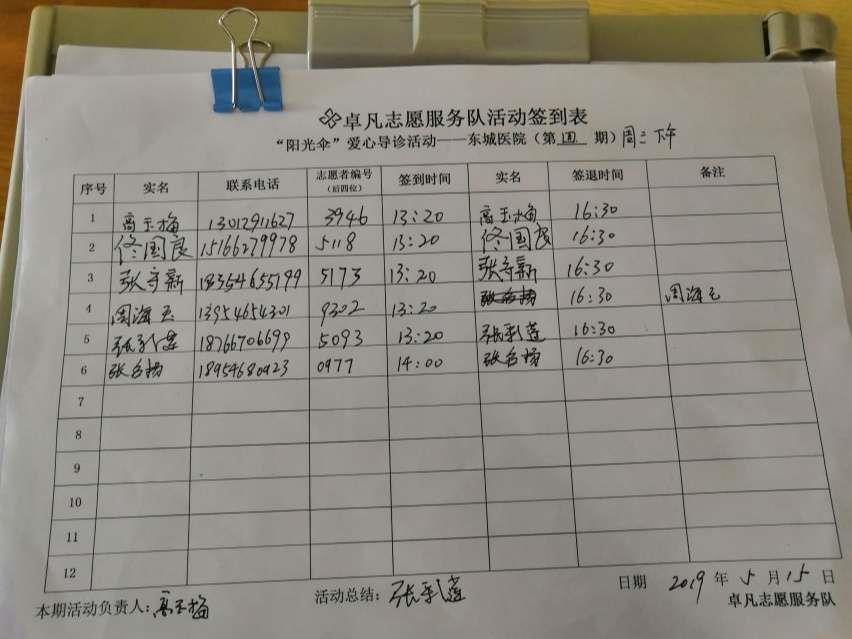 卓凡志愿服务队活动签到表
“阳光伞”爱心导诊活动——东城医院（第 期）周三下午
序号 实名 联系电话 志愿者编号（后四位） 签到时间 实名 签退时间 备注
1 高玉梅 13012911627 3946 13:20 高玉梅 16:30
2 佟国良 15166279978 5118 13:20 佟国良 16:30
3 张守新 18354655199 5173 13:20 张守新 16:30
4 周海玉 13954654301 9302 13:20 张名扬 16:30 周海玉
5 张彩莲 18766706699 5093 13:20 张彩莲 16:30
6 张名扬 18954680923 0977 14:00 张名扬 16:30
7
8
9
10
11
12
本期活动负责人：高玉梅 活动总结：张彩莲 日期 2019 年 5 月 15 日
卓凡志愿服务队